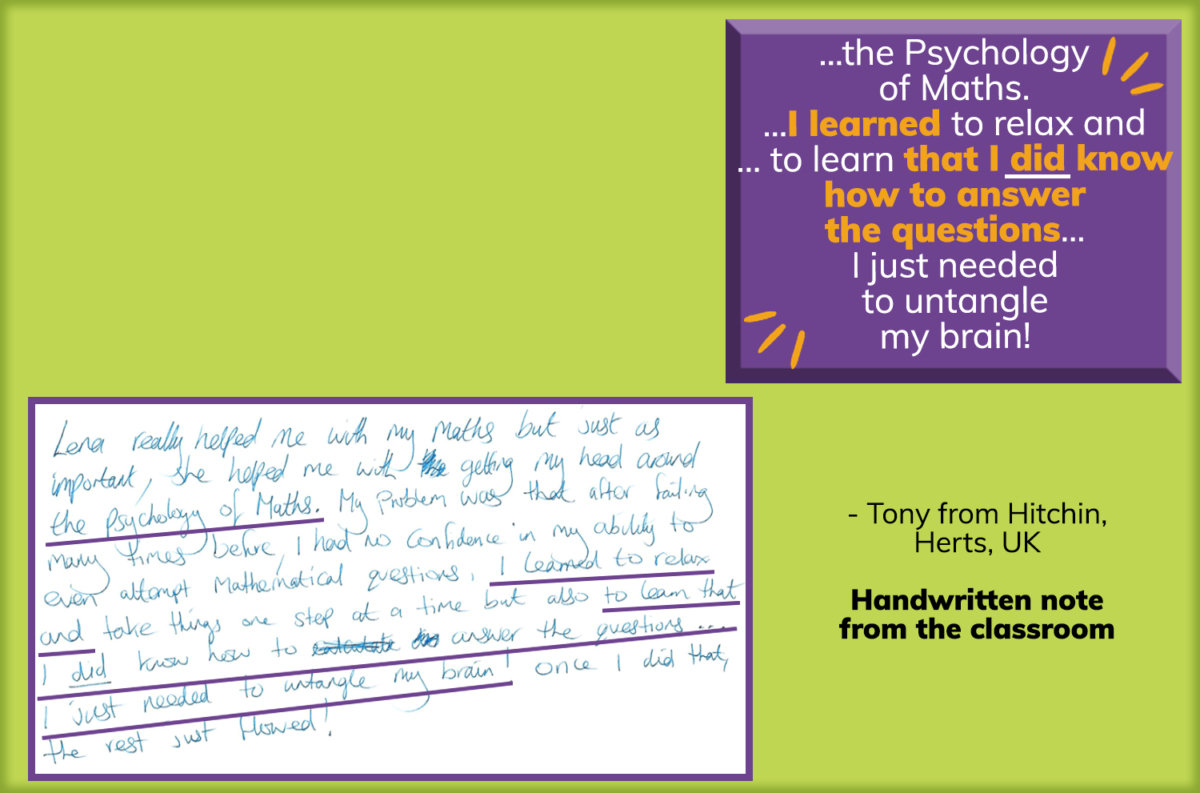 ...the Psychology
of Maths.
...I learned to relax and
... to learn that I did know
how to answer
the questions...
I just needed
to untangle
my brain!
Lena really helped me with my Maths but just as
important, she helped me with getting my head around
the Psychology of Maths. My Problem was that after failing
many times before, I had no confidence in my ability to
even attempt Mathematical questions. I learned to relax
and take things one step at a time but also to learn that
I did know how to answer the questions ....
I just needed to untangle my brain! once I did that,
the rest just flowed!
- Tony from Hitchin,
Herts, UK
Handwritten note
from the classroom